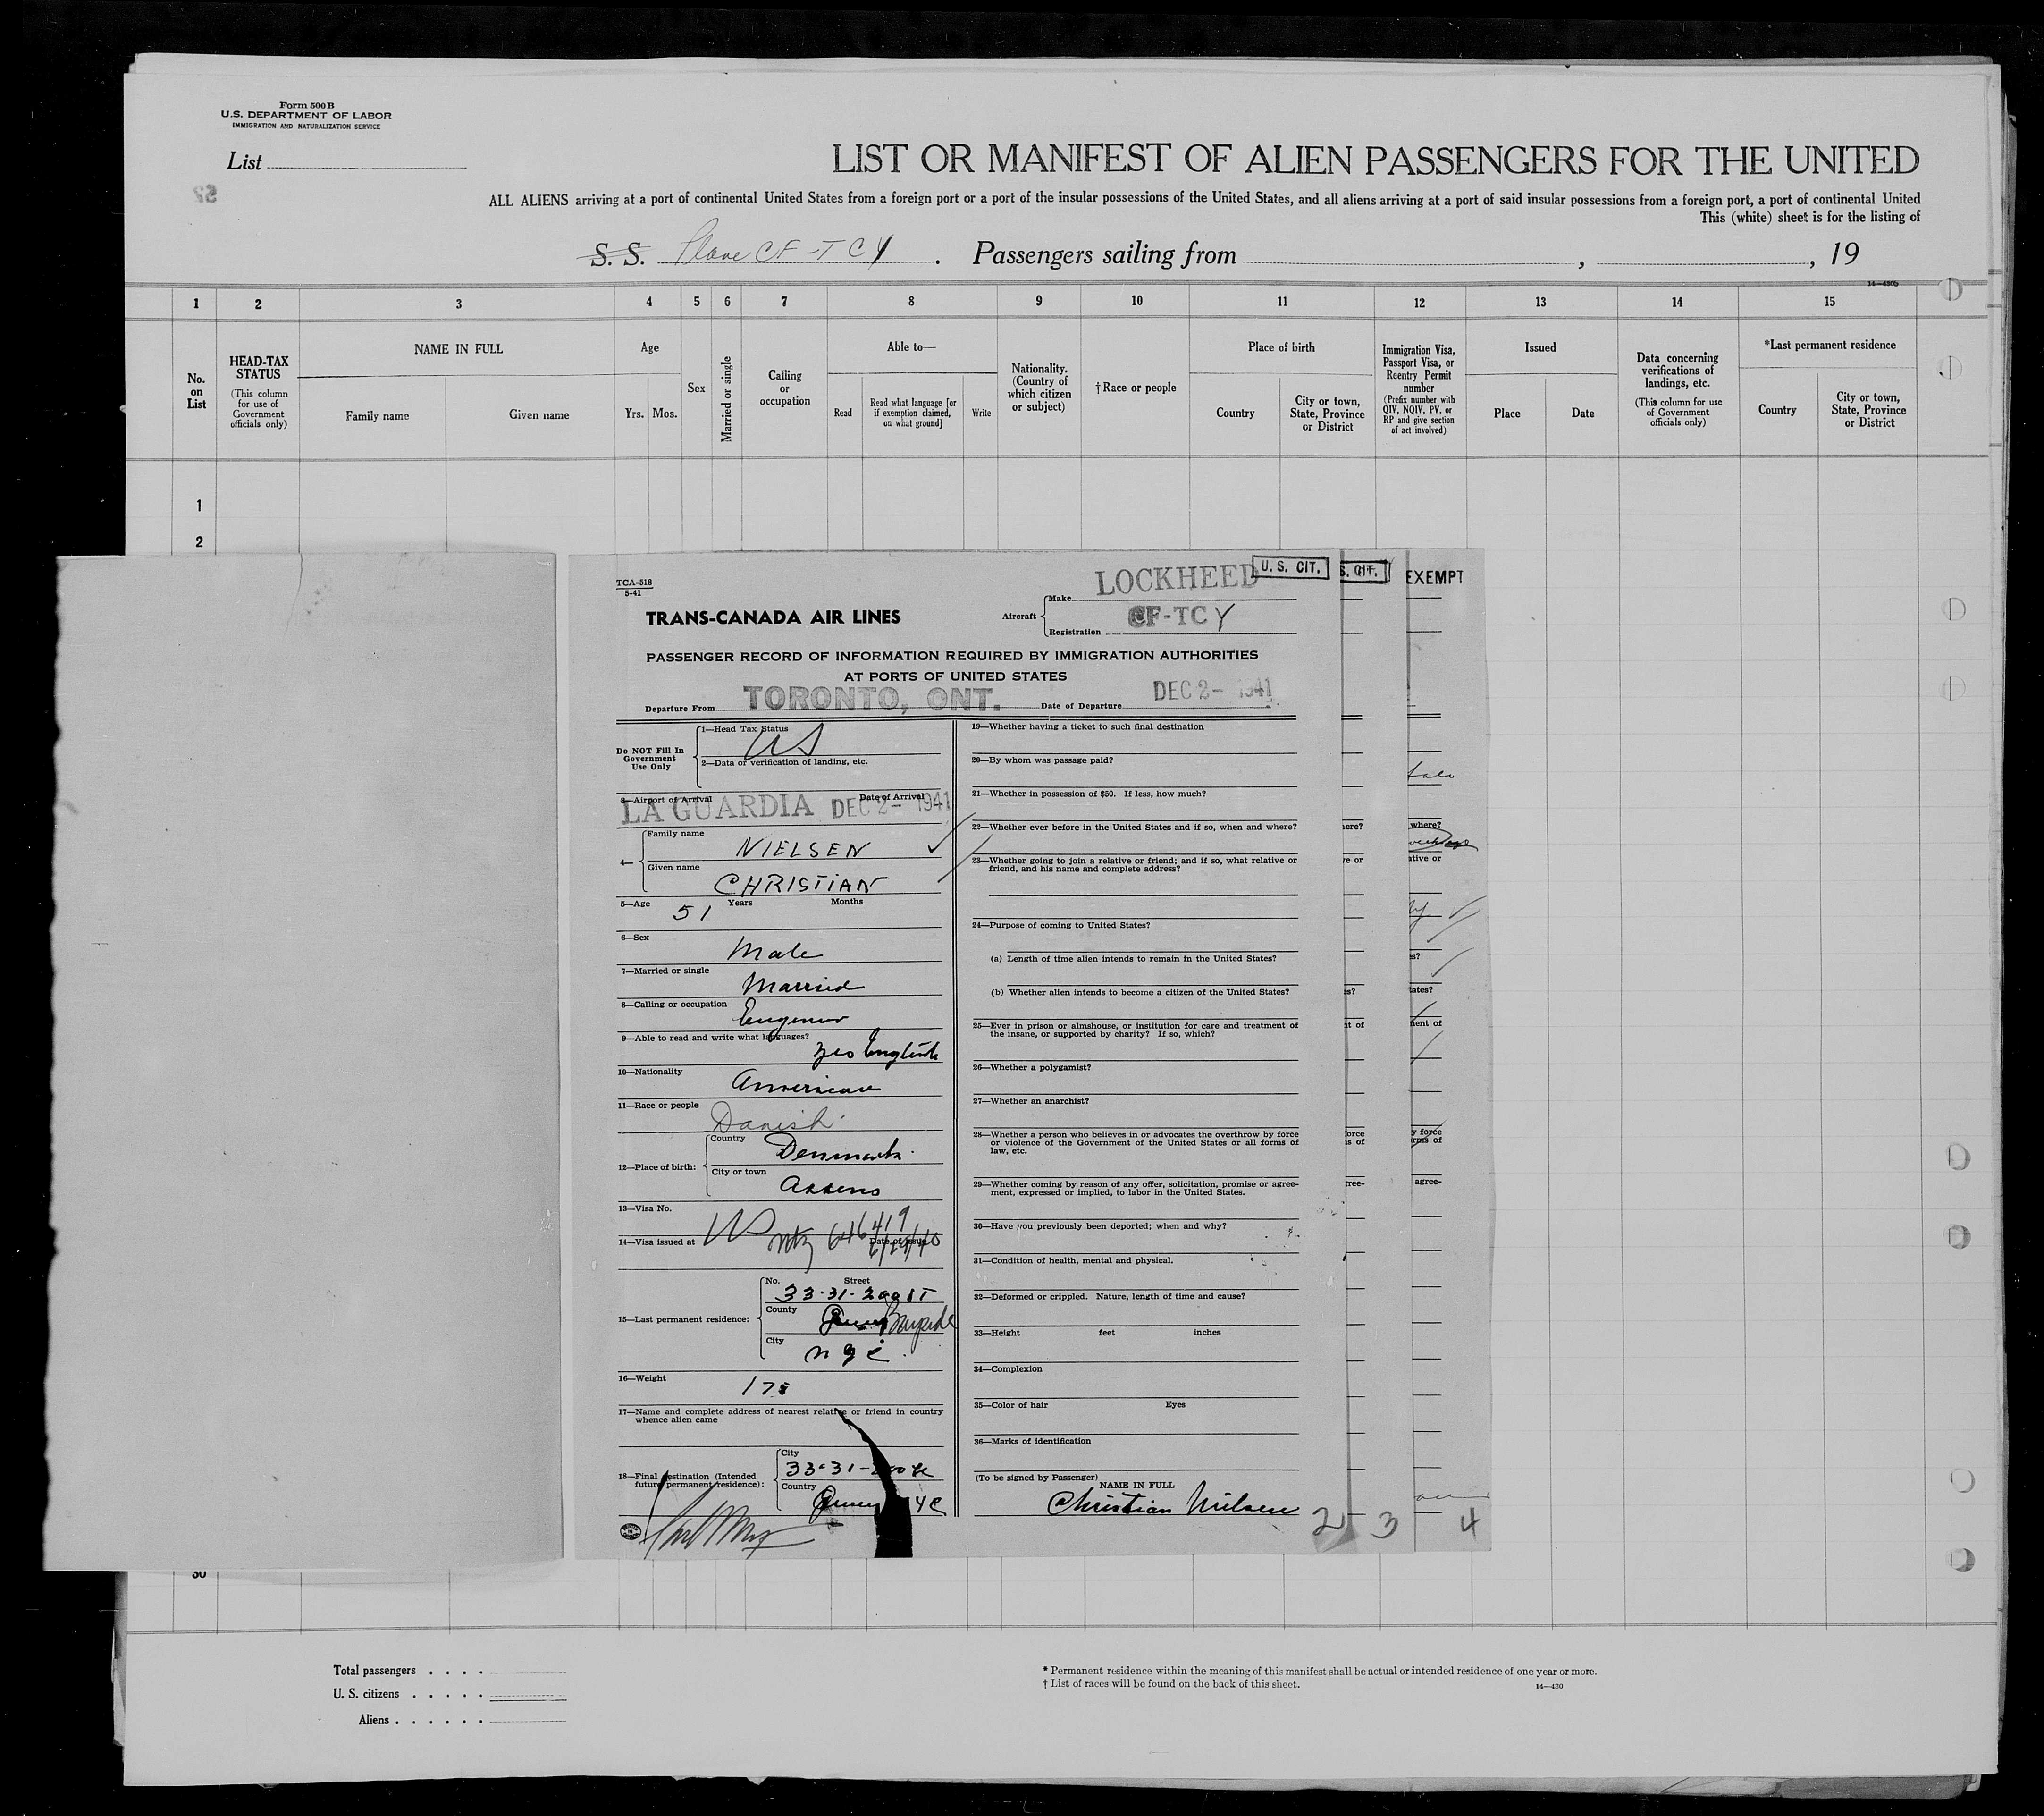 Form 500 B
U.S. DEPARTMENT OF LABOR
IMMIGRATION AND NATURALIZATION SERVICE
List
52
LIST OR MANIFEST OF ALIEN PASSENGERS FOR THE UNITED
ALL ALIENS arriving at a port of continental United States from a foreign port or a port of the insular possessions of the United States, and all aliens arriving at a port of said insular possessions from a foreign port, a port of continental United
This (white) sheet is for the listing of
S. S. Plane CF-TCY . Passengers sailing from , , 19
14—430b
1 2 3 4 5 6 7 8 9 10 11 12 13 14 15
No. on List
HEAD-TAX STATUS
(This column for use of Government officials only)
NAME IN FULL
Family name Given name
Age
Yrs. Mos.
Sex
Married or single
Calling or occupation
Able to—
Read
Read what language [or if exemption claimed, on what ground]
Write
Nationality. (Country of which citizen or subject)
† Race or people
Place of birth
Country
City or town, State, Province or District
Immigration Visa, Passport Visa, or Reentry Permit number
(Prefix number with QIV, NQIV, PV, or RP and give section of act involved)
Issued
Place Date
Data concerning verifications of landings, etc.
(This column for use of Government officials only)
*Last permanent residence
Country
City or town, State, Province or District
1
2
TCA-518
5-41
TRANS-CANADA AIR LINES
Aircraft
Make LOCKHEED
Registration CF-TCY
U. S. CIT.
S. CIT.
EXEMPT
PASSENGER RECORD OF INFORMATION REQUIRED BY IMMIGRATION AUTHORITIES
AT PORTS OF UNITED STATES
Departure From TORONTO, ONT. Date of Departure DEC 2- 1941
Do NOT Fill In Government Use Only
1—Head Tax Status US
2—Data or verification of landing, etc.
3—Airport of Arrival Date of Arrival
LA GUARDIA DEC 2- 1941
4—
Family name NIELSEN
Given name CHRISTIAN
5—Age 51 Years Months
6—Sex Male
7—Married or single Married
8—Calling or occupation Engineer
9—Able to read and write what languages? Yes English
10—Nationality American
11—Race or people Danish
12—Place of birth:
Country Denmark
City or town Assens
13—Visa No. US
14—Visa issued at Date of Issue
15—Last permanent residence:
No. Street 33-31-200 ST
County Queens Bayside
City N Y C
16—Weight 175
17—Name and complete address of nearest relative or friend in country whence alien came
18—Final destination (Intended future permanent residence):
City 33-31-200 St
Country Queens NYC
19—Whether having a ticket to such final destination
20—By whom was passage paid?
21—Whether in possession of $50. If less, how much?
22—Whether ever before in the United States and if so, when and where?
23—Whether going to join a relative or friend; and if so, what relative or
friend, and his name and complete address?
24—Purpose of coming to United States?
(a) Length of time alien intends to remain in the United States?
(b) Whether alien intends to become a citizen of the United States?
25—Ever in prison or almshouse, or institution for care and treatment of
the insane, or supported by charity? If so, which?
26—Whether a polygamist?
27—Whether an anarchist?
28—Whether a person who believes in or advocates the overthrow by force
or violence of the Government of the United States or all forms of
law, etc.
29—Whether coming by reason of any offer, solicitation, promise or agree-
ment, expressed or implied, to labor in the United States.
30—Have you previously been deported; when and why?
31—Condition of health, mental and physical.
32—Deformed or crippled. Nature, length of time and cause?
33—Height feet inches
34—Complexion
35—Color of hair Eyes
36—Marks of identification
(To be signed by Passenger)
NAME IN FULL
Christian Nielsen
2 3 4
30
Total passengers . . . .
U. S. citizens . . . . .
Aliens . . . . . .
* Permanent residence within the meaning of this manifest shall be actual or intended residence of one year or more.
† List of races will be found on the back of this sheet.
14—430